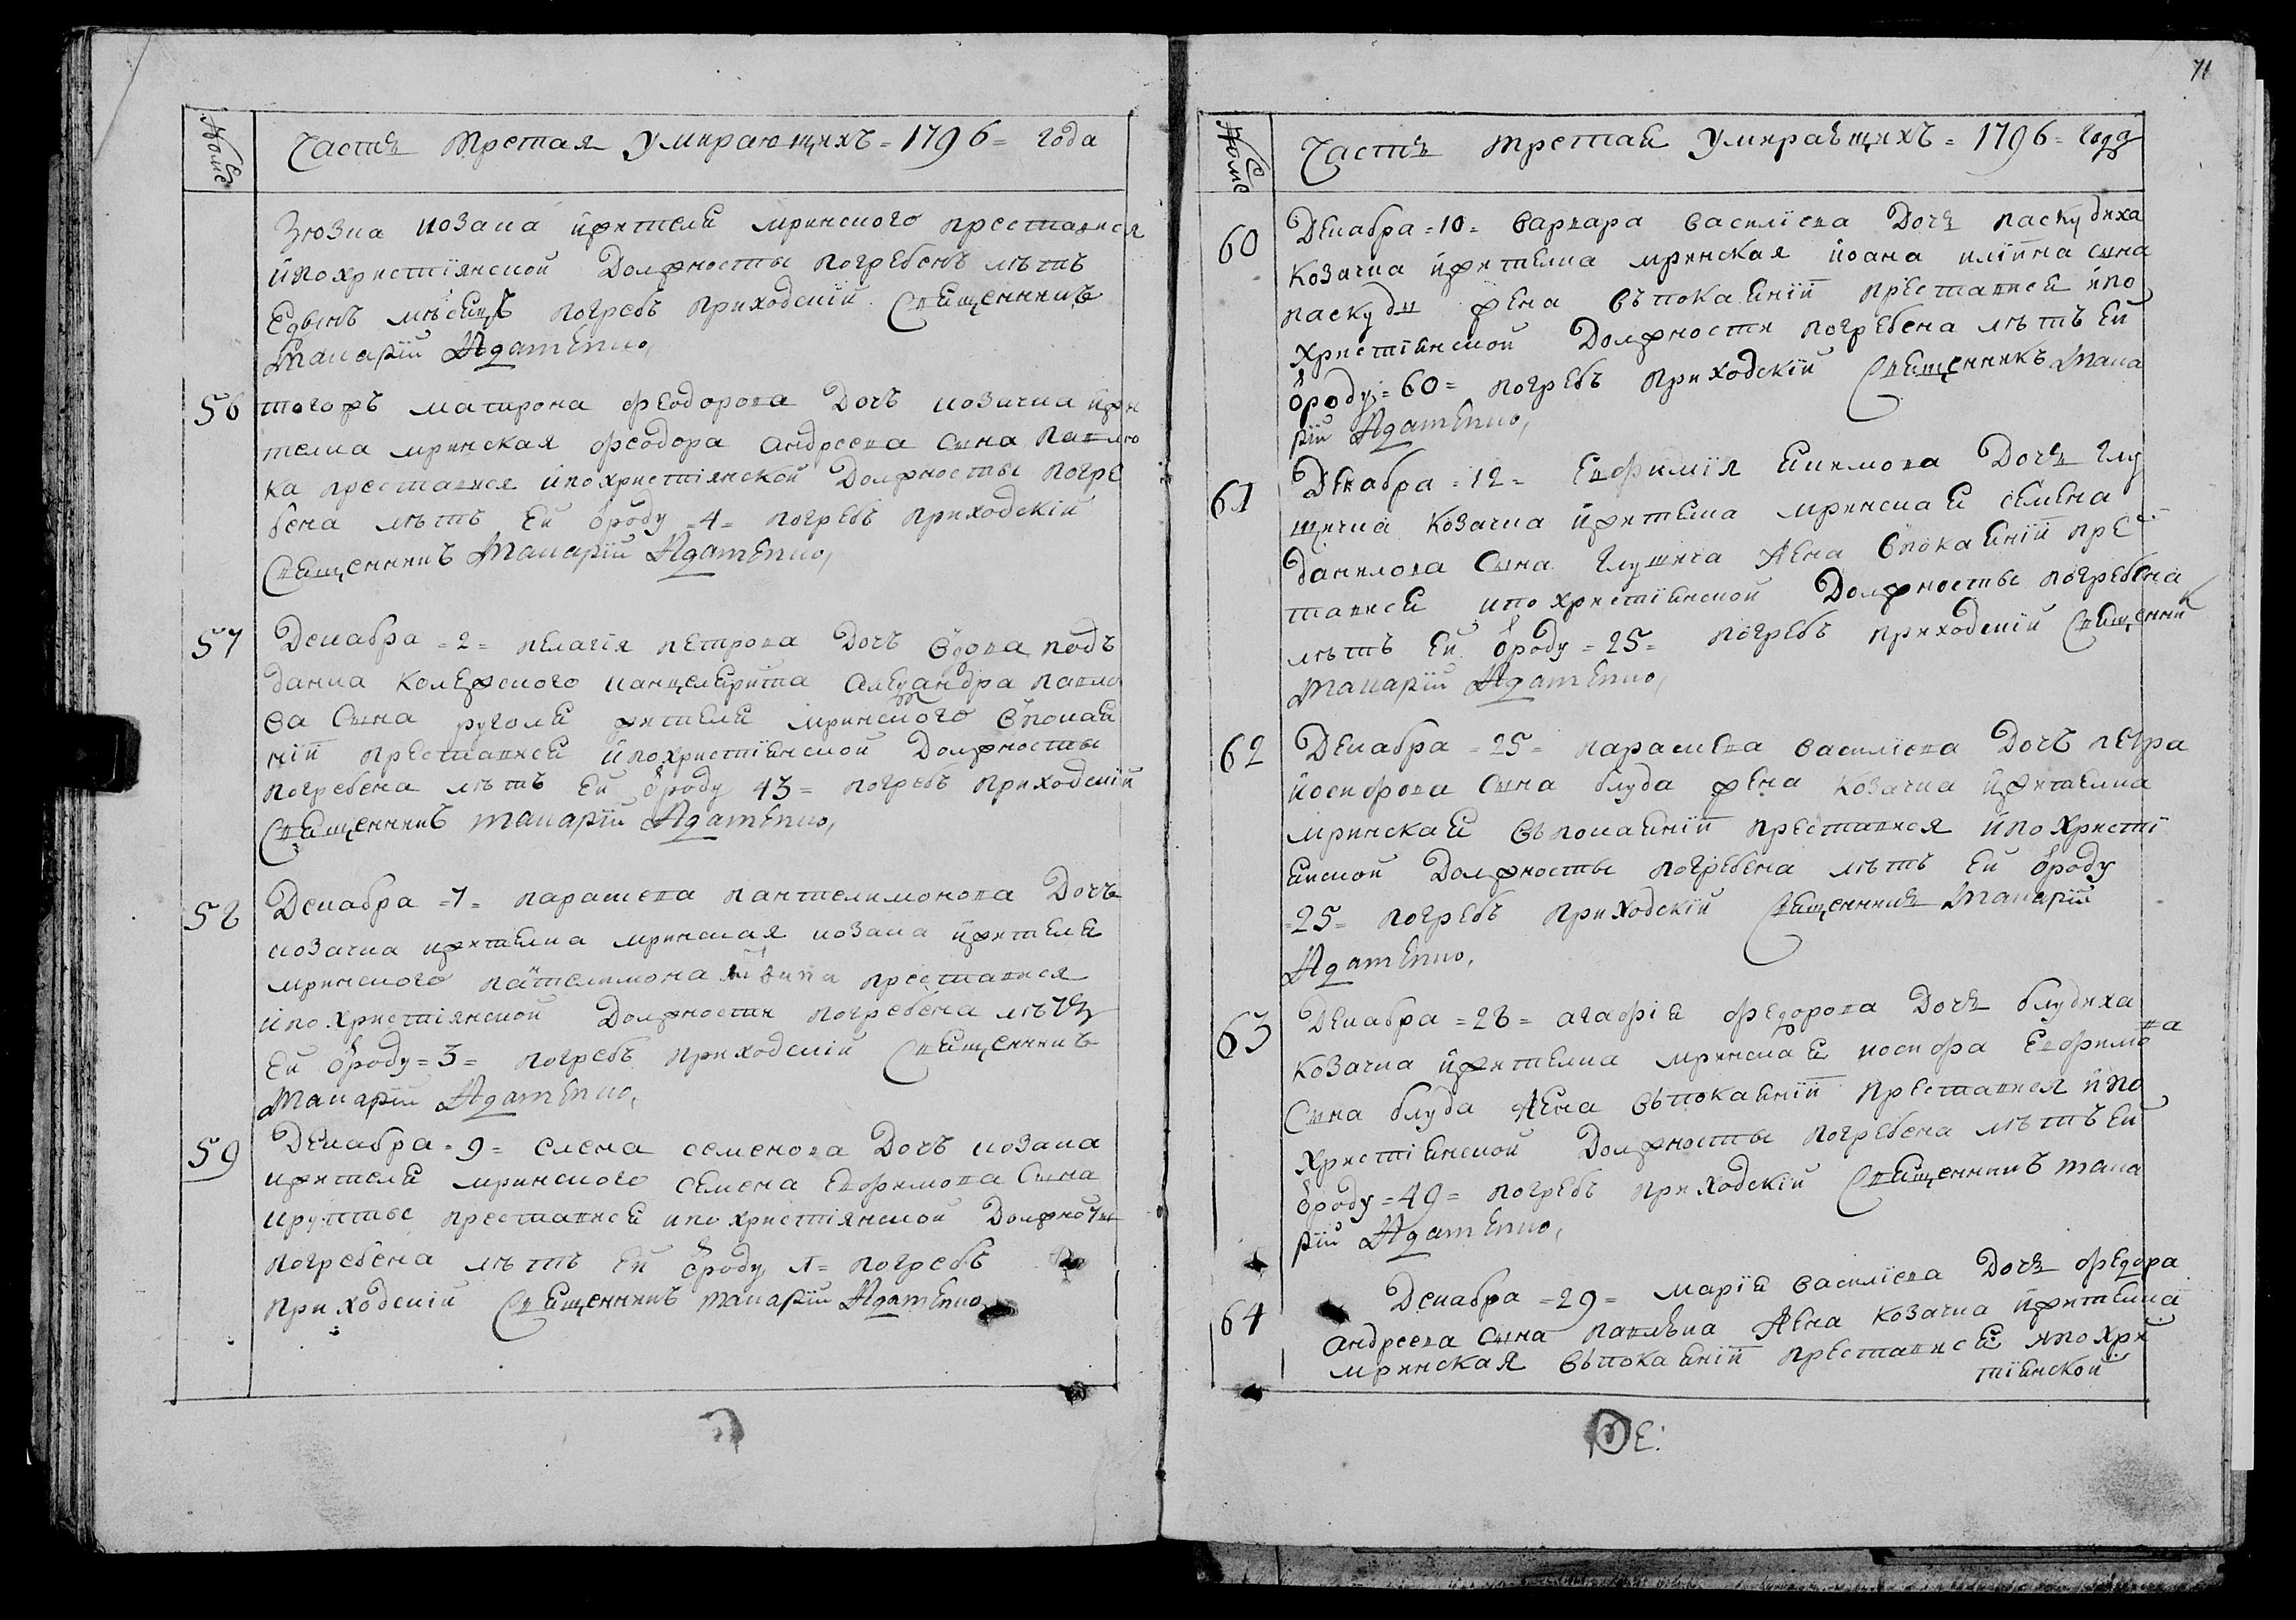 Номе
Часть третая Умирающихъ = 1796 = года
Зюзка козака и жителя мринского преставися
и по христїянской должносты погребенъ лѣтъ
едвенъ мѣсецъ погребъ приходскїй Священникъ
Макарїй Адаменко,
56 тогожъ матрона феодорова дочъ козачка и жи
телка мринская феодора андреева сына павлю
ка преставися и по христїянской должносты погре
бена лѣтъ ей ѿроду =4= погребъ приходскїй
Священникъ Макарїй Адаменко,
57 Декабра =2= пелагїя петрова дочъ вдова подъ
данка колежского канцеляриста александра павло
ва сына руголя жителя мринского в покая
нїи преставися и по христїянской должносты
погребена лѣтъ ей ѿроду 43= погребъ приходскїй
Священникъ Макарїй Адаменко,
58 Декабра =7= параскева пантелимонова дочъ
козачка и жителка мринская козака и жителя
мринского пантелимона преставися
и по христїянской должности погребена лѣтъ
ей ѿроду =3= погребъ приходскїй Священникъ
Макарїй Адаменко,
59 Декабра =9= елена семенова дочъ козака
и жителя мринского семена евфимова сына
преставися и по христїянской должносты
погребена лѣтъ ей ѿроду 1= погребъ
приходскїй Священникъ макарїй Адаменко
71
Номе
Часть третая Умираящихъ = 1796 = года
60 Декабра =10= варвара василїева дочь паскудиха
козачка и жителка мринская їоана сына
паскуды жена въ покаянїи преставися и по
христїянской должности погребена лѣтъ ей
ѿроду =60= погребъ приходскїй Священникъ Мака
рїй Адаменко,
61 Декабра =12= Евфимїя екимова дочь глу
щичка козачка и жителка мринская семена
данилова сына глущича жена в покаянїи пре
тавися и по христїянской должносты погребена
лѣтъ ей ѿроду =25= погребъ приходскїй Священник
Макарїй Адаменко,
62 Декабра =25= параскева василїева дочъ петра
їосифова сына блуда жена козачка и жителка
мринская въ покаянїи преставися и по христї
янской должносты погребена лѣтъ ей ѿроду
=25= погребъ приходскїй Священникъ Макарїй
Адаменко,
63 Декабра =28= агафїя федорова дочь блудиха
козачка и жителка мринская иосифа Евфимова
сына блуда жена въ покаянїи преставися и по
христїянской должносты погребена лѣтъ ей
ѿроду =49= погребъ приходскїй Священникъ мака
рїй Адаменко,
64 Декабра =29= марїя василїева дочь федора
андреева сына павлюка жена козачка и жителка
мринская въ покаянїи преставися и по хри
тїянской